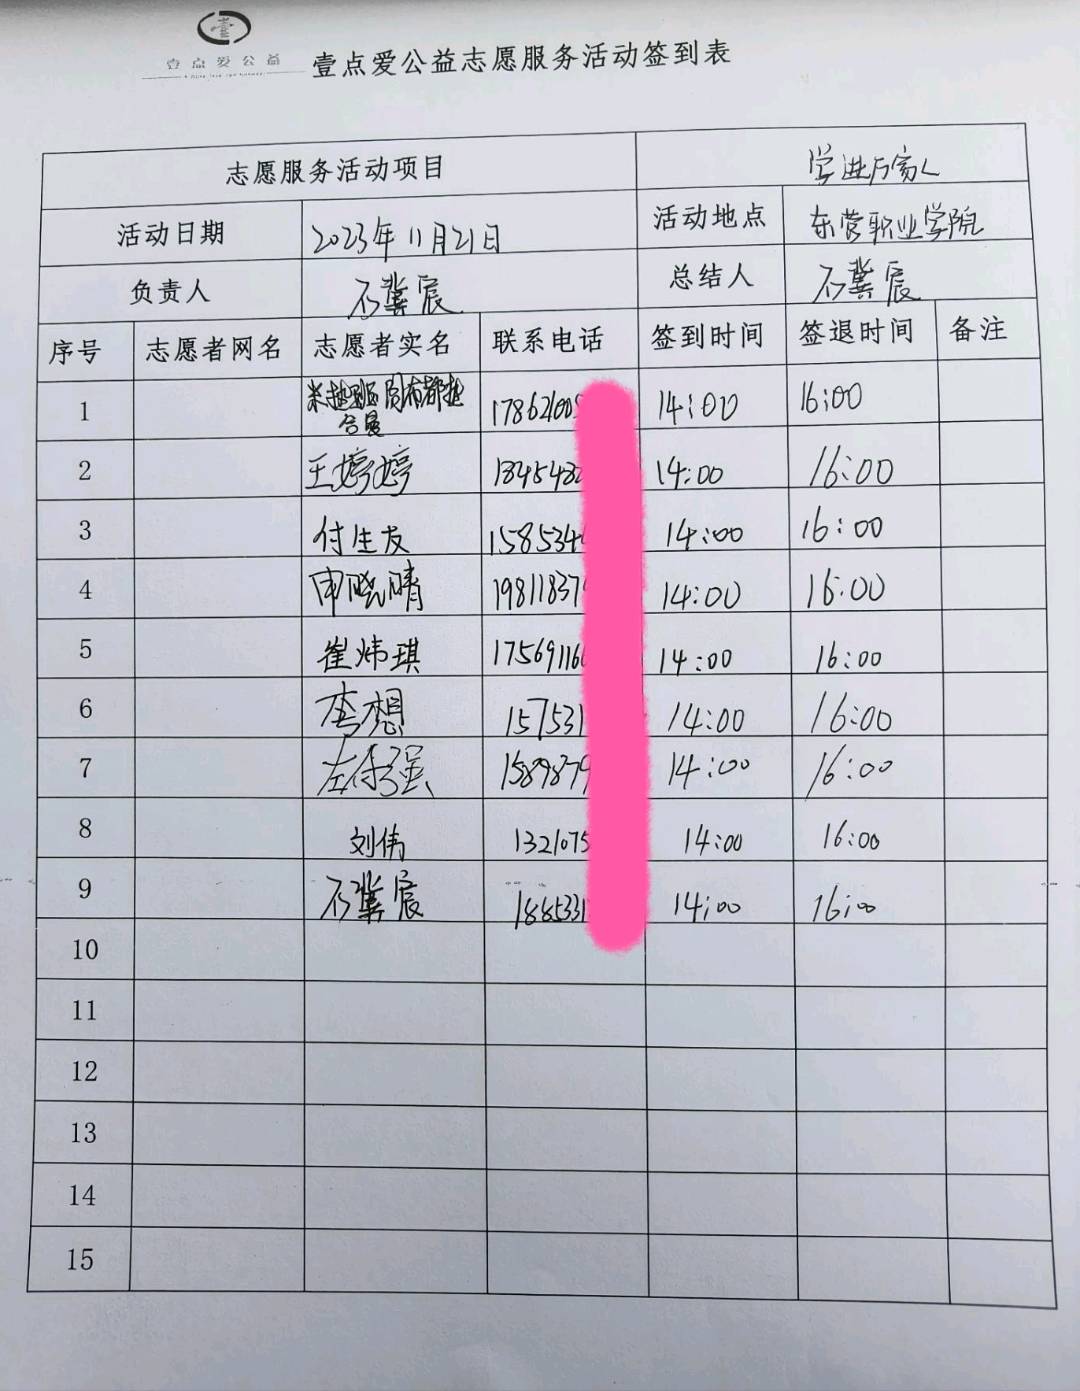 壹
壹点爱公益
壹点爱公益志愿服务活动签到表
志愿服务活动项目 学进万家
活动日期 2023年11月21日 活动地点 东营职业学院
负责人 石冀宸 总结人 石冀宸
序号 志愿者网名 志愿者实名 联系电话 签到时间 签退时间 备注
1 17862100 14:00 16:00
2 王婷婷 1345482 14:00 16:00
3 付生友 158534 14:00 16:00
4 申晓晴 19811837 14:00 16:00
5 崔炜琪 17569116 14:00 16:00
6 李想 157531 14:00 16:00
7 左传强 1589879 14:00 16:00
8 刘伟 1321075 14:00 16:00
9 石冀宸 1885331 14:00 16:00
10
11
12
13
14
15